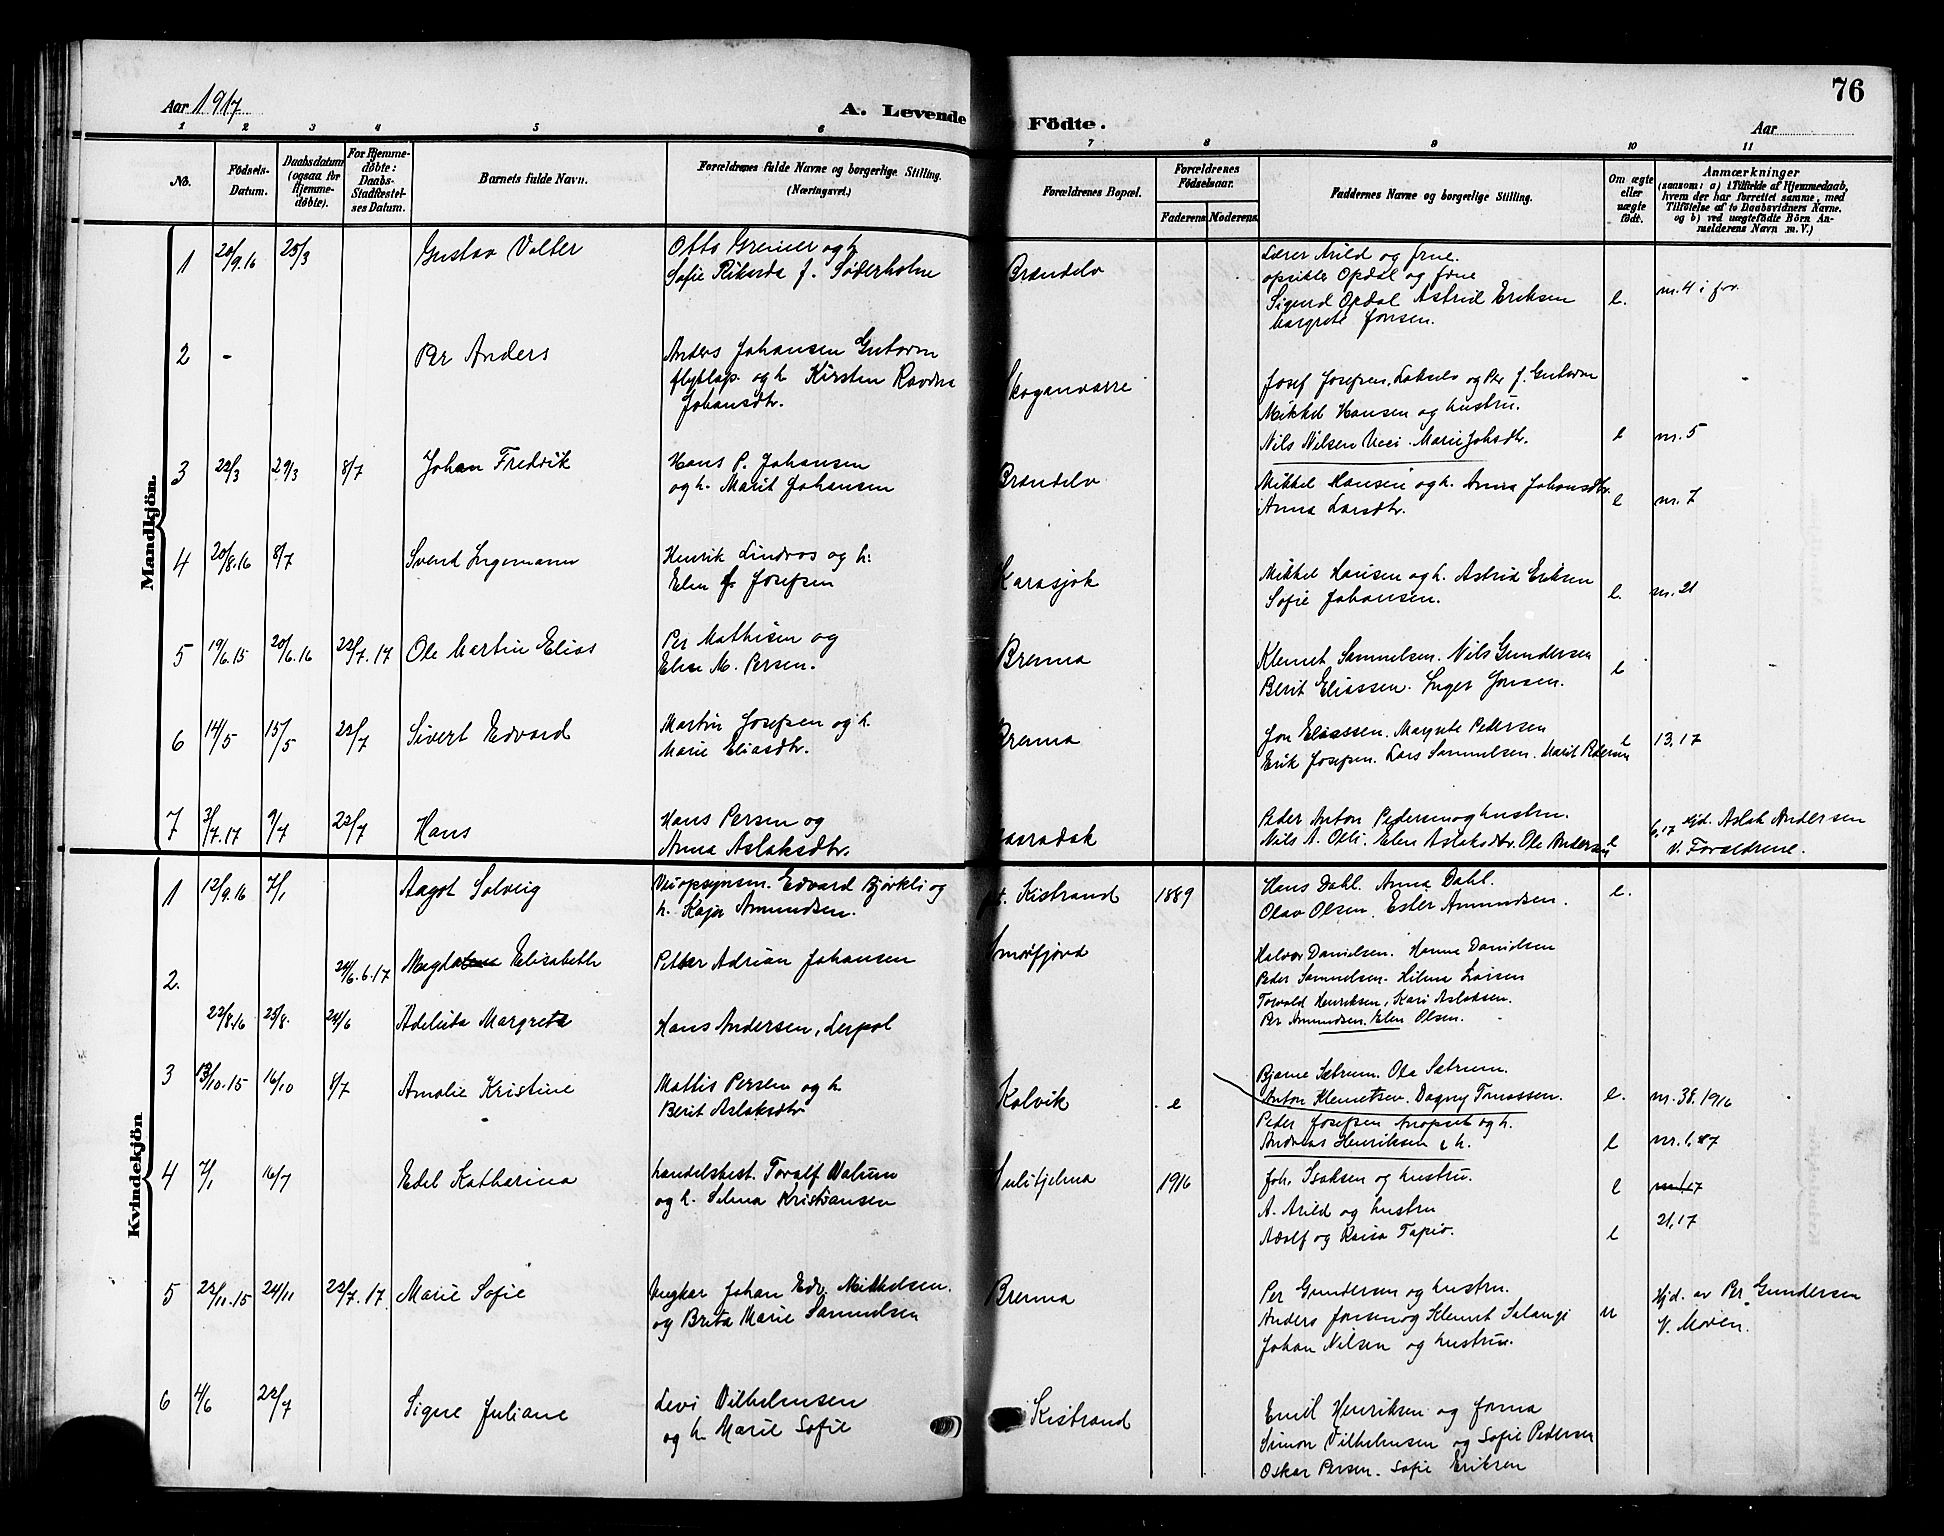 76
Aar 1917
A. Levende
Födte.
Aar
1 2 3 4 5 6 7 8 9 10 11
No.
Födsels-
Datum.
Daabsdatum
(ogsaa for
Hjemme-
døbte).
For Hjemme-
døbte:
Daabs-
Stadfæstel-
ses Datum.
Barnets fulde Navn.
Forældrenes fulde Navne og borgerlige Stilling.
(Næringsvei.)
Forældrenes Bopæl.
Forældrenes
Födselsaar.
Faderens. Moderens.
Faddernes Navne og borgerlige Stilling.
Om ægte
eller
uægte
født.
Anmærkninger
(saasom: a) i Tilfælde af Hjemmedaab,
hvem der har forrettet samme, med
Tilføielse af to Daabsvidners Navne,
og b) ved uægtefødte Börn An-
melderens Navn m. V.)
Mandkjön.
1 20/9.16 25/3 Gustav Valter
Otto Greiner og h
Sofie Rikarda f. Søderholm
Brændelv
Lærer Arild og frue.
Opdal og frue
Sigurd Opdal Astrid Eriksen
Margrete Jonsen.
e.
nr. 4 i for.
2 - Per Anders
Anders Johansen Guttorm
flytlap. og h Kirsten Ravdna
Johansdtr.
Skoganvarre
Josef Josefsen, Lakselv og Per J. Guttorm
Mikkel Hansen og hustru.
Nils Nilsen Marie Johsdtr.
e nr. 5
3 22/3 29/3 8/7 Johan Fredrik
Hans P. Johansen
og h. Marit Johansen
Brændelv
Mikkel Hansen og h. Anna Johansdtr.
Anna Larsdtr.
e nr. 7
4 20/8.16 8/7 Svend Ingemann
Henrik Lindros og h:
Elen f. Josefsen
Karasjok
Mikkel Hansen og h. Astrid Eriksen
Sofie Johansen.
e. nr. 21
5 19/6.15 20/6.16 22/7.17 Ole Martin Elias
Per Mathisen og
Elise M. Persen.
Brenna
Klemet Samuelsen. Nils Gundersen
Berit Eliassen. Inger Jonsen.
e -
6 14/5 15/5 22/7 Sivert Edvard
Martin Josefsen og h.
Marie Eliasdtr.
Brenna
Jon Eliassen. Margrete Pedersen
Erik Josefsen. Lars Samuelsen. Marit Pedersen
e 13,17
7 3/7.17 9/7 22/7 Hans
Hans Persen og
Anna Aslaksdtr.
Peder Anton Pedersen og hustru.
Nils A. Olli. Elen Aslaksdtr. Ole Andersen
e
6,17 Hjd. Aslak Andersen
V. Forældrene.
Kvindekjön
1 12/9.16 7/1 Aagot Solveig
Veiopsynsm. Edvard Bjørkli og
h. Kaja Amundsen.
pt. Kistrand 1889
Hans Dahl. Anna Dahl.
Olav Olsen. Ester Amundsen.
e.
2. 24/6.17 Magdalena Elisabeth
Petter Adrian Johansen
Smørfjord
Halvor Danielsen. Hanna Danielsen
Peder Samuelsen. Hilma Larsen
22/8.16 25/8. 24/6 Adeleita Margreta
Hans Andersen, Lerpol
Torvald Henriksen, Kari Aslaksen.
Per Amundsen. Elen Olsen.
3 13/10.15 16/10 8/7 Amalie Kristine
Mattis Persen og h.
Berit Aslaksdtr
Kolvik e
Bjarne Sætrum. Ola Sætrum.
Anton Klemetsen. Dagny Tomassen.
e. nr. 38. 1916
Peder Josefsen og h.
Andreas Henriksen & h.
e
4 7/1 16/7 Edel Katharina
handelsbest. Toralf Valum
og h. Selma Kristiansen
Sulitjelma 1916
Joh. Isaksen og hustru.
A. Arild og hustru
Adolf og Kaisa Tapio.
e
21,17
e
5 22/11.15 24/11 22/7.17. Marie Sofie
Ungkar Johan Edv. Mikkelsen.
og Brita Marie Samuelsen
Brenna
Per Gundersen og hustru.
Anders Jonsen og Klemet Salangi
Johan Nilsen og hustru.
u
Hjd. av Per Gundersen
V. Moren.
6 4/6 22/7 Signe Juliane
Levi Vilhelmsen
og h. Marie Sofie
Kistrand
Emil Henriksen og Jonna
Simon Vilhelmsen og Sofie Pedersen
Oskar Persen. Sofie Eriksen